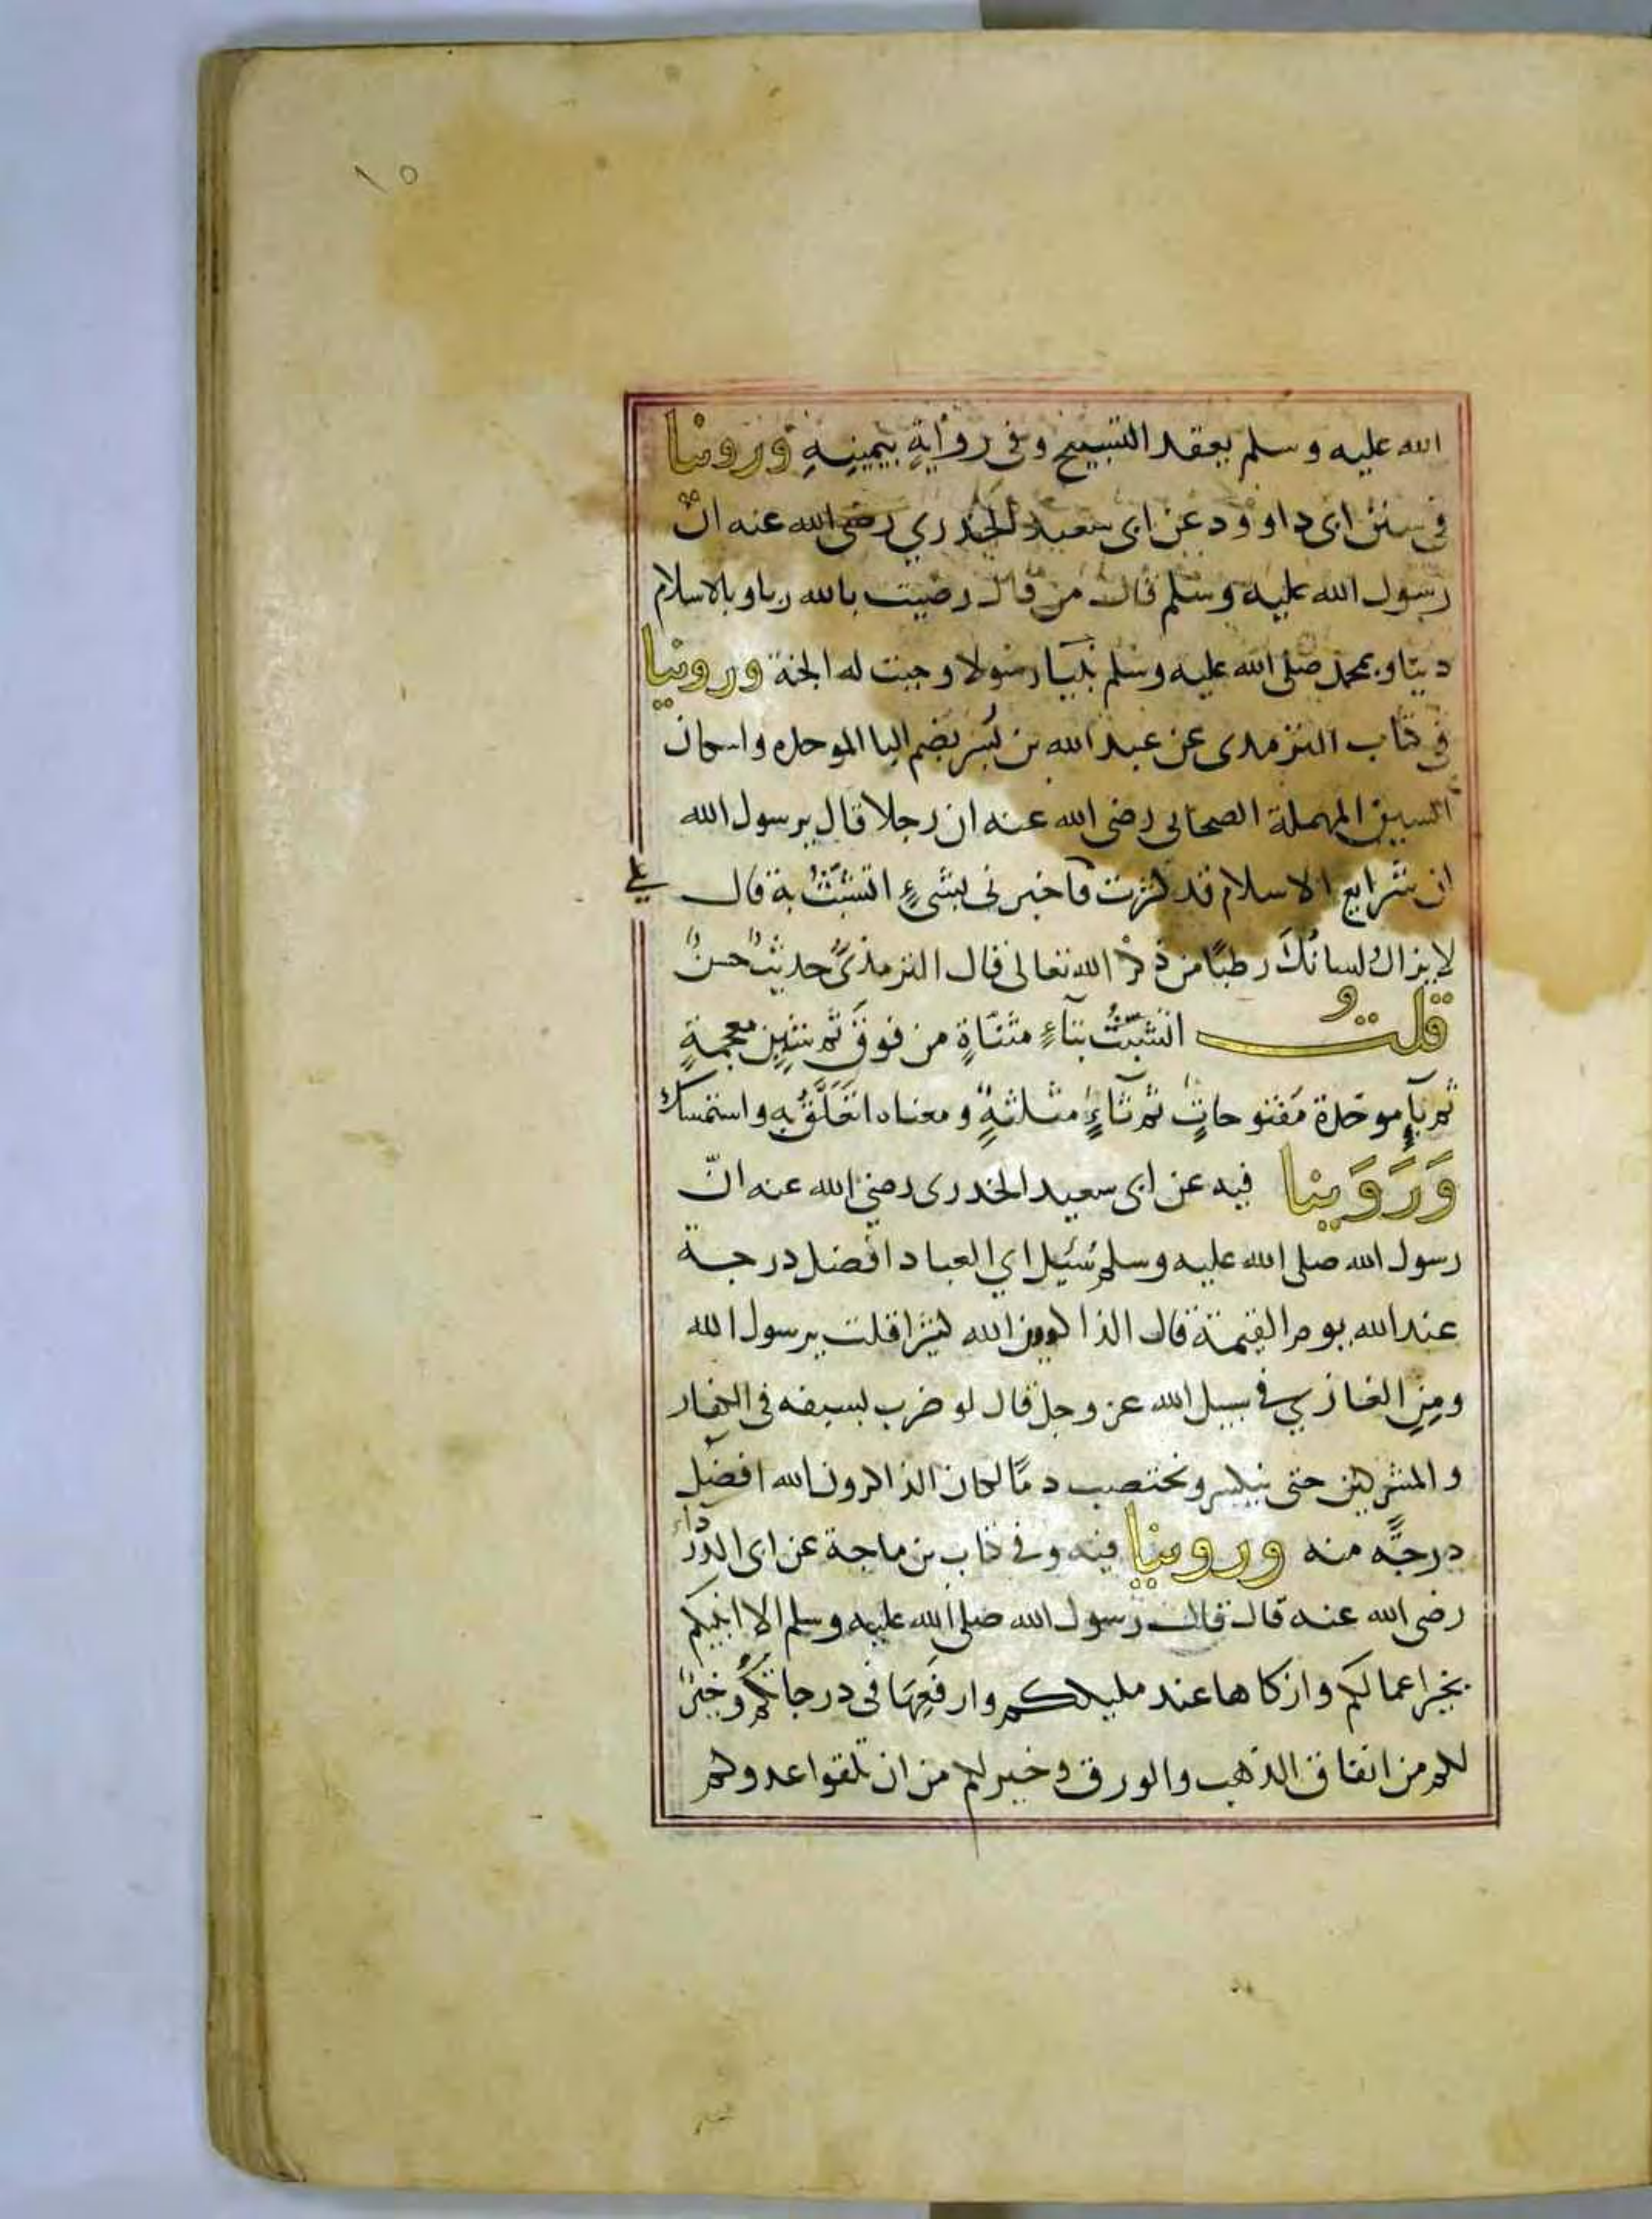 ١٥
الله عليه وسلم يعقد التسبيح وفى رواية بيمينه وروينا
فى سنن ابى داوود عن ابى سعيد الخدري رضى الله عنه ان
رسول الله عليه وسلم قال من قال رضيت بالله ربا وبالاسلام
دينا وبمحمد صلى الله عليه وسلم نبيا رسولا وجبت له الجنة وروينا
فى كتاب الترمدى عن عبد الله بن بُسر بضم البا الموحده واسكان
السين المهملة الصحابى رضى الله عنه ان رجلا قال يرسول الله
ان شرايع الاسلام قد كثرت فأخبرنى بشىءٍ اتشبّثُ به قال
على
لا يزال لسانُكَ رطبًا من ذكر الله تعالى قال الترمذىُّ حديثٌ حسنٌ
قلتُ اتشبّثُ بتآءٍ مثنّاةٍ من فوقَ ثم شينٍ معجمةٍ
ثم بآءٍ موحّدة مَفتوحاتٍ ثم ثآءٍ مثلثةٍ ومعناه اتعَلَّقُ به واستمسك
وَرَوَينا فيه عن ابى سعيد الخدرى رضي الله عنه انّ
رسول الله صلى الله عليه وسلم سُئيل اي العباد افضل درجة
عند الله يوم القيمة قال الذاكرين الله كثيرا قلت يرسول الله
ومِن الغازي في سبيل الله عز وجل قال لو ضرب بسيفه فى الكفار
والمشركين حتى ينكسر ويختصب دمًا لكان الذاكرون الله افضل
درجةً منه وروينا فيه وفي كتاب بن ماجة عن ابى الدّرداء
رضى الله عنه قال قال رسول الله صلى الله عليه وسلم الا انبيكم
بخير اعمالكم وازكاها عند مليككم وارفعِهَا فى درجاتكُم وخيرٌ
لكم من انفاق الذهب والورق وخير لكم من ان تلقوا عدوكم